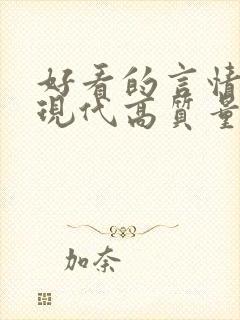 好看的言情
現代高質量
加奈